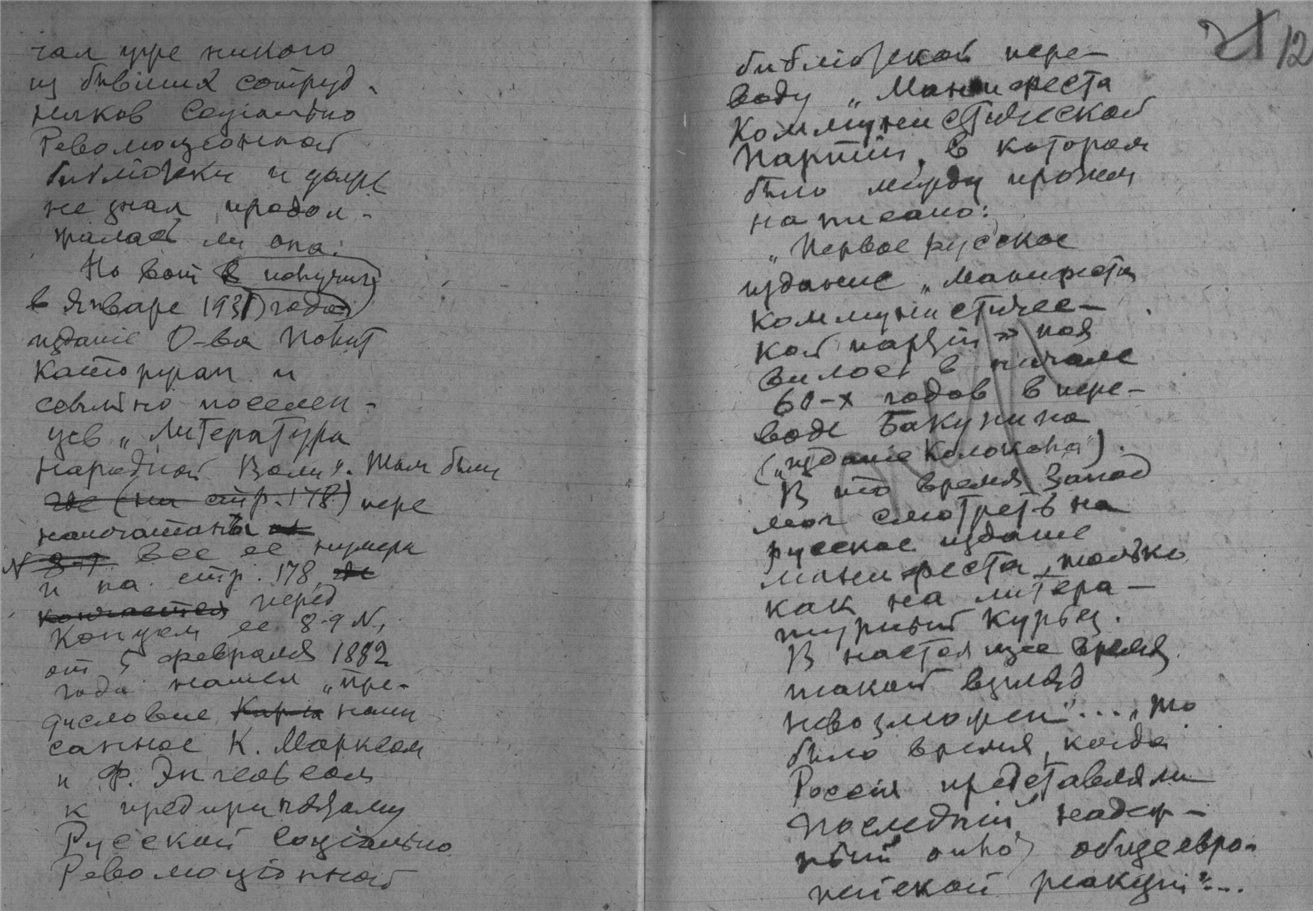 чал уже никого
из бывших сотруд-
ников Соціально
Революціонной
библіотеки и даже
не знал продол-
жалась ли она.
Но вот я получил
в Январе 1931 года
изданіе О-ва Полит
Каторжан и
ссыльно поселен-
цев „Литература
Народной Воли". Там были
где (на стр. 178) пере
напечатаны
N 8-9. все ее нумера
и на стр. 178,
кончается перед
Концом ее 8-9 N,
от 5 февраля 1882
года нашел „пре-
дисловие Карла напи
санное К. Марксом
и Ф. Энгельсом
к предпринятому
Русской Соціально
Революціонной
12
библіотекой пере-
воду „Манифеста
Коммунистической
Партіи, в котором
было между прочим
написано:
„Первое русское
издание „Манифеста
Коммунистичес-
кой партіи" поя
вилось в начале
60-х годов в пере-
воде Бакунина
(„изданіе Колокола").
В то время Запад
мог смотреть на
русское издание
манифеста, только
как на литера-
турный курьез.
В настоящее время
такой взгляд
невозможен"... „то
было время, когда
Россія представляла
последній надеж-
ный оплот общеевро-
пейской реакціи"...